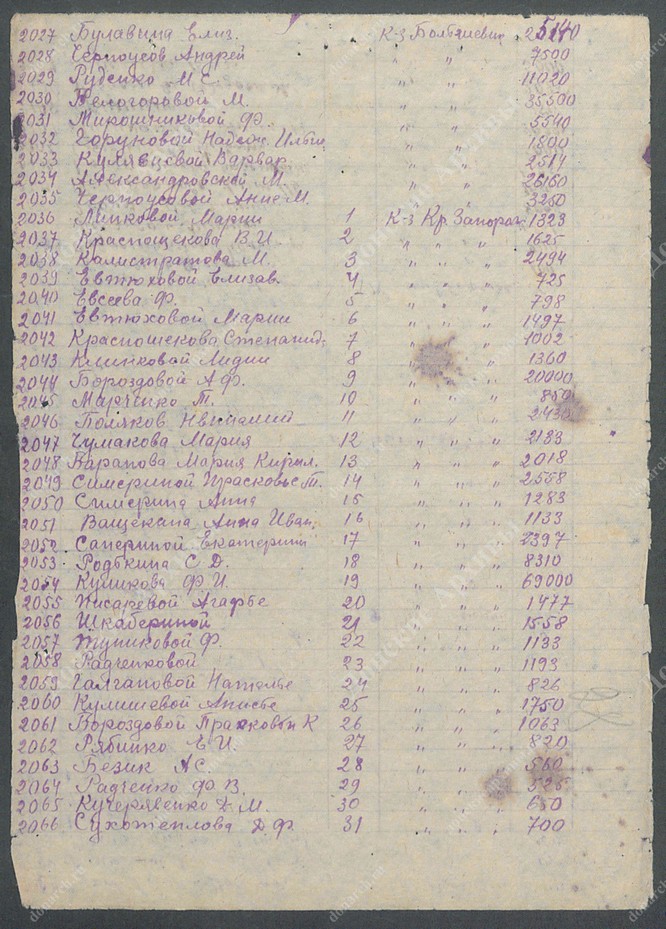 2027 Булавина Елиз. К-з Большевик 25140
2028 Черноусов Андрей " " 7500
2029 Руденко М Е. " " 11020
2030 Белогоровой М. " " 35500
2031 Мирошниковой Ф. " " 5540
2032 Горуновой Надеж. Ильин " " 1800
2033 Кулявцевой Варвар " " 2514
2034 Александровской М. " " 26160
2035 Черноусовой Анне М. " " 3250
2036 Липковой Марии 1 К-з Кр. Запорож. 1323
2037 Краснощекова В.И. 2 " " " 1625
2038 Калистратова М. 3 " " " 2494
2039 Евтюховой Елизав. 4 " " " 725
2040 Евсеева Ф. 5 " " " 798
2041 Евтюховой Марии 6 " " " 1497
2042 Краснощекова Степанид. 7 " " " 1002
2043 Климковой Лидии 8 " " 1360
2044 Бороздовой А Ф. 9 " " 20000
2045 Марченко Т. 10 " " " 850
2046 Поляков 11 " " " 2430
2047 Чумакова Мария 12 " " " 2183
2048 Барапова Мария Кирил. 13 " " " 2018
2049 Симериной Прасковье Т. 14 " " " 2558
2050 Симерина Анна 15 " " " 1283
2051 Ващекина Анна Иван. 16 " " " 1133
2052 Сапериной Екатерины 17 " " " 2397
2053 Родькина С Д. 18 " " " 8310
2054 Кушкова Ф И. 19 " " " 69000
2055 Писаревой Агафье 20 " " " 1477
2056 Шкабериной 21 " " " 1558
2057 Жуниковой Ф. 22 " " " 1133
2058 Радченковой 23 " " " 1193
2059 Галгановой Наталье 24 " " " 826
2060 Кулишевой Анисье 25 " " " 1750
2061 Бороздовой Прасковьи К 26 " " " 1063
2062 Рябинко Е И. 27 " " " 820
2063 Безик А С. 28 " " " 560
2064 Радченко Ф В. 29 " " " 525
2065 Кучерявенко Д. М. 30 " " " 650
2066 Сухотеплова Д Ф 31 " " " 700